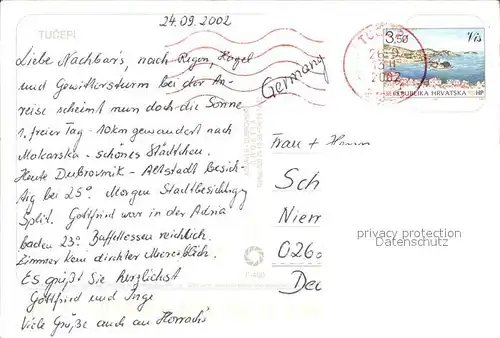 24.09.2002
TUČEPI
Liebe Nachbar's, nach Regen, Hagel
und Gewittersturm bei der An-
reise scheint nun doch die Sonne
1. freier Tag - 10km gewandert nach
Makarska - schönes Städtchen.
Heute Dubrovnik - Altstadt besich-
tig bei 25°. Morgen Stadtbesichtigg
Split. Gottfried war in der Adria
baden 23°. Buffettessen reichlich.
Zimmer kein direkter Meeresblick.
Es grüßt Sie herzlichst
Gottfried und Inge
Viele Grüße auch an
Germany
3,50
Vis
REPUBLIKA HRVATSKA HP
2002
Frau +
Sch
Niem
026
Deu
F-460
privacy protection
Datenschutz